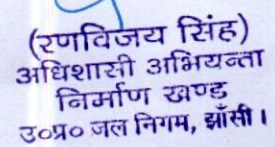 (रणविजय सिंह)
अधिशासी अभियन्ता
निर्माण खण्ड
उ०प्र० जल निगम, झाँसी।